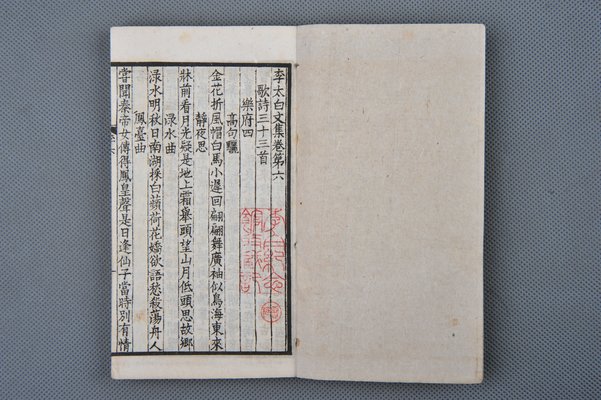 李太白文集卷第六
歌詩三十三首
樂府四
高句驪
金花折風帽白馬小遲回翩翩舞廣袖似鳥海東來
靜夜思
牀前看月光疑是地上霜舉頭望山月低頭思故鄉
淥水曲
淥水明秋日南湖採白蘋荷花嬌欲語愁殺蕩舟人
鳳臺曲
嘗聞秦帝女傳得鳳皇聲是日逢仙子當時別有情